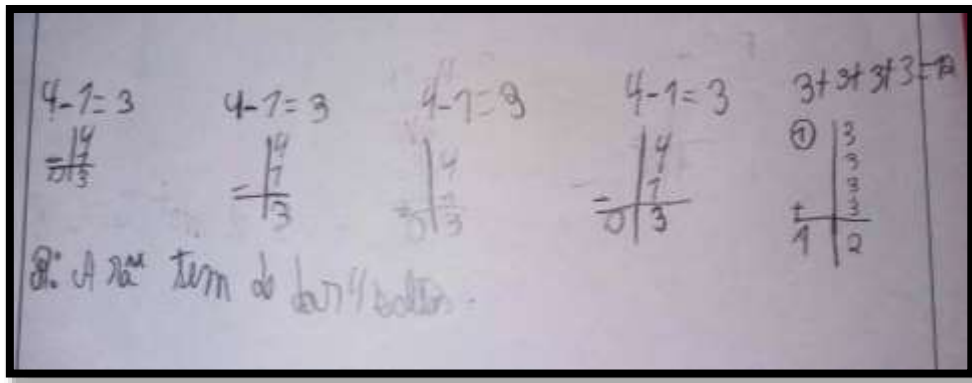 4-1=3 4-1=3 4-1=3 4-1=3 3+3+3+3=12
4 4 4 4 ① 3
- 1 - 1 - 1 - 1 3
0 3 3 0 3 0 3 3
+ 3
1 2
R: A rã tem de dar 4 saltos.